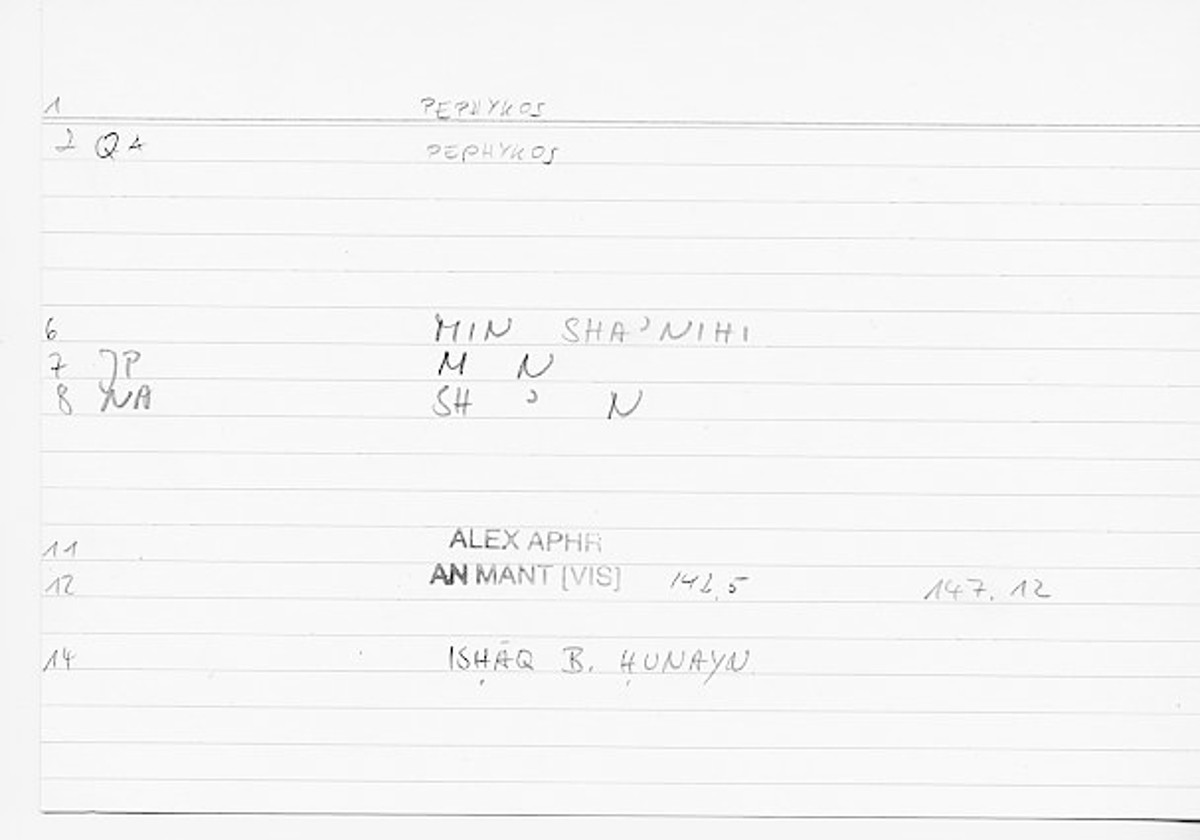 1 PEPHYKOS
2 Q4 PEPHYKOS
6 MIN SHAʾNIHI
7 JP M N
8 NA SH ʾ N
11 ALEX APHR
12 AN MANT [VIS] 142,5 147.12
14 ISḤĀQ B. ḤUNAYN